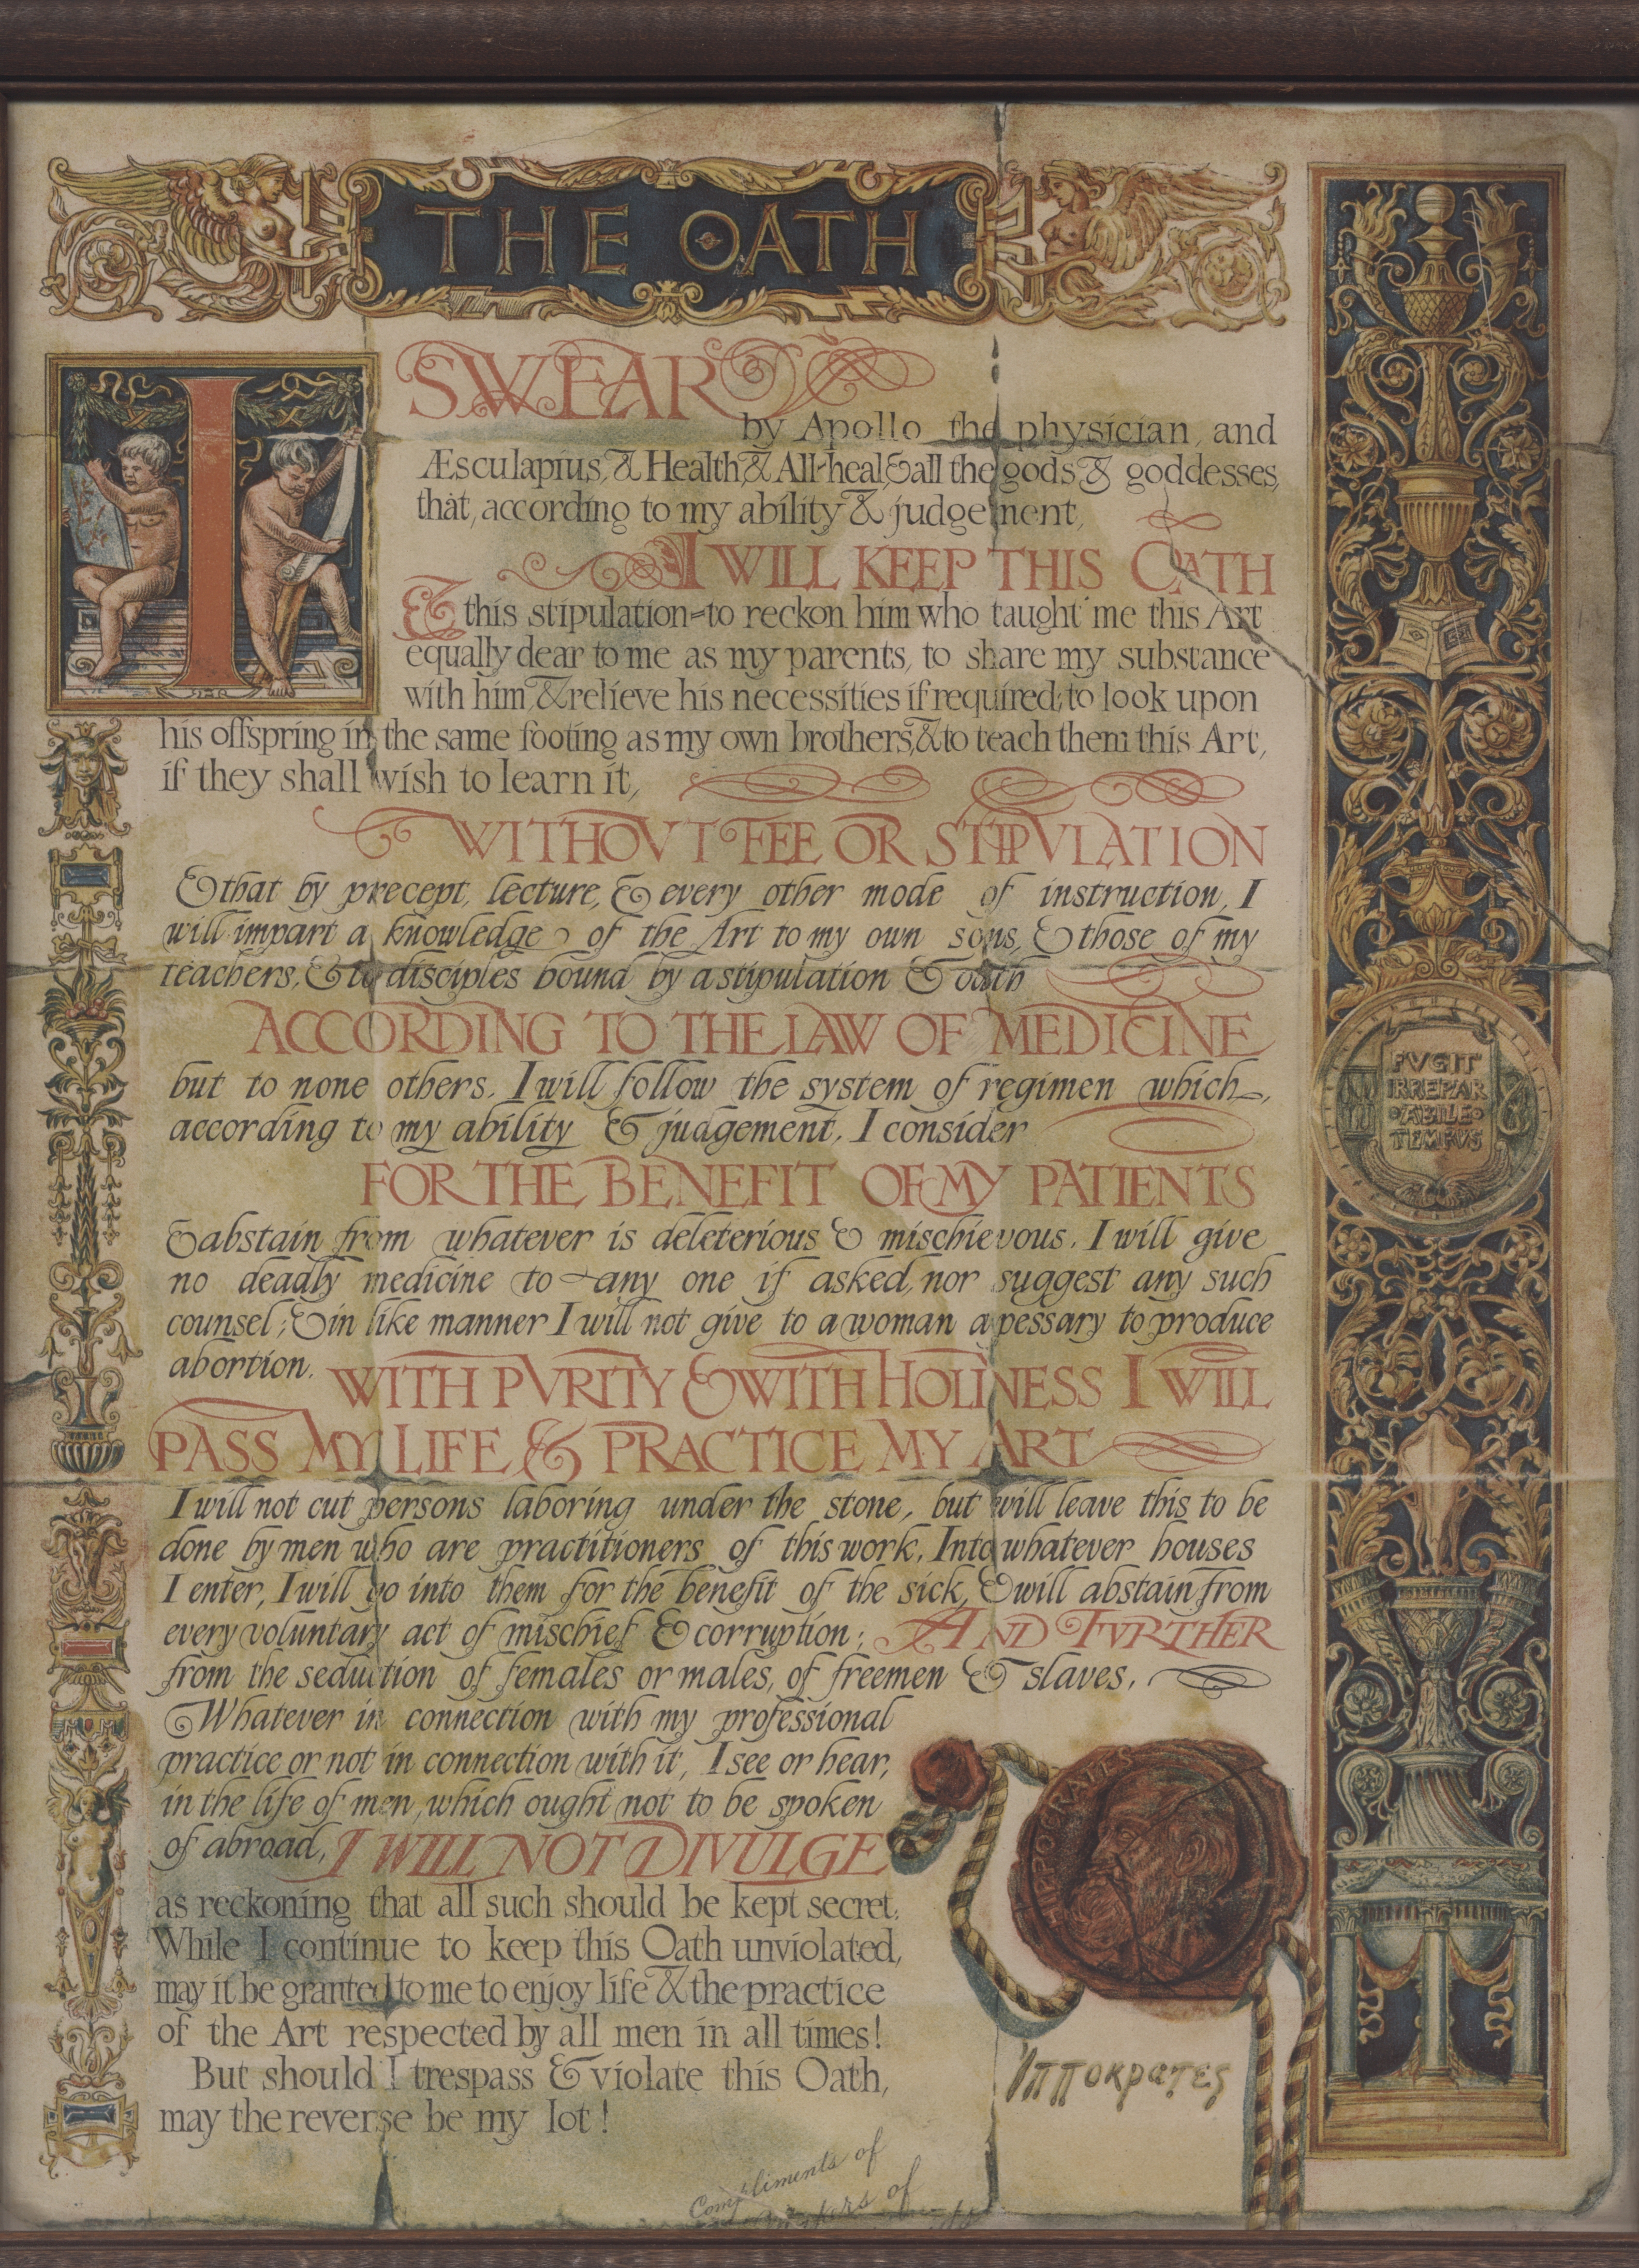 THE OATH
I SWEAR
by Apollo the physician, and
Æsculapius, & Health, & All-heal, & all the gods & goddesses,
that, according to my ability & judgement,
I WILL KEEP THIS OATH
& this stipulation=to reckon him who taught me this Art
equally dear to me as my parents, to share my substance
with him, & relieve his necessities if required; to look upon
his offspring in the same footing as my own brothers, & to teach them this Art,
if they shall wish to learn it,
WITHOVT FEE OR STIPVLATION
& that by precept, lecture, & every other mode of instruction, I
will impart a knowledge of the Art to my own sons, & those of my
teachers, & to disciples bound by a stipulation & oath
ACCORDING TO THE LAW OF MEDICINE
but to none others. I will follow the system of regimen which,
according to my ability & judgement, I consider
FOR THE BENEFIT OF MY PATIENTS
& abstain from whatever is deleterious & mischievous. I will give
no deadly medicine to any one if asked, nor suggest any such
counsel; & in like manner I will not give to a woman a pessary to produce
abortion. WITH PVRITY & WITH HOLINESS I WILL
PASS MY LIFE & PRACTICE MY ART
I will not cut persons laboring under the stone, but will leave this to be
done by men who are practitioners of this work. Into whatever houses
I enter, I will go into them for the benefit of the sick, & will abstain from
every voluntary act of mischief & corruption; AND FVRTHER
from the seduction of females or males, of freemen & slaves.
Whatever in connection with my professional
practice or not in connection with it, I see or hear,
in the life of men, which ought not to be spoken
of abroad, I WILL NOT DIVULGE
as reckoning that all such should be kept secret.
While I continue to keep this Oath unviolated,
may it be granted to me to enjoy life & the practice
of the Art respected by all men in all times!
But should I trespass & violate this Oath,
may the reverse be my lot!
FVGIT
IRREPAR
ABILE
TEMPVS
HIPPOCRATES
Ἱπποκρατες
Compliments of
of